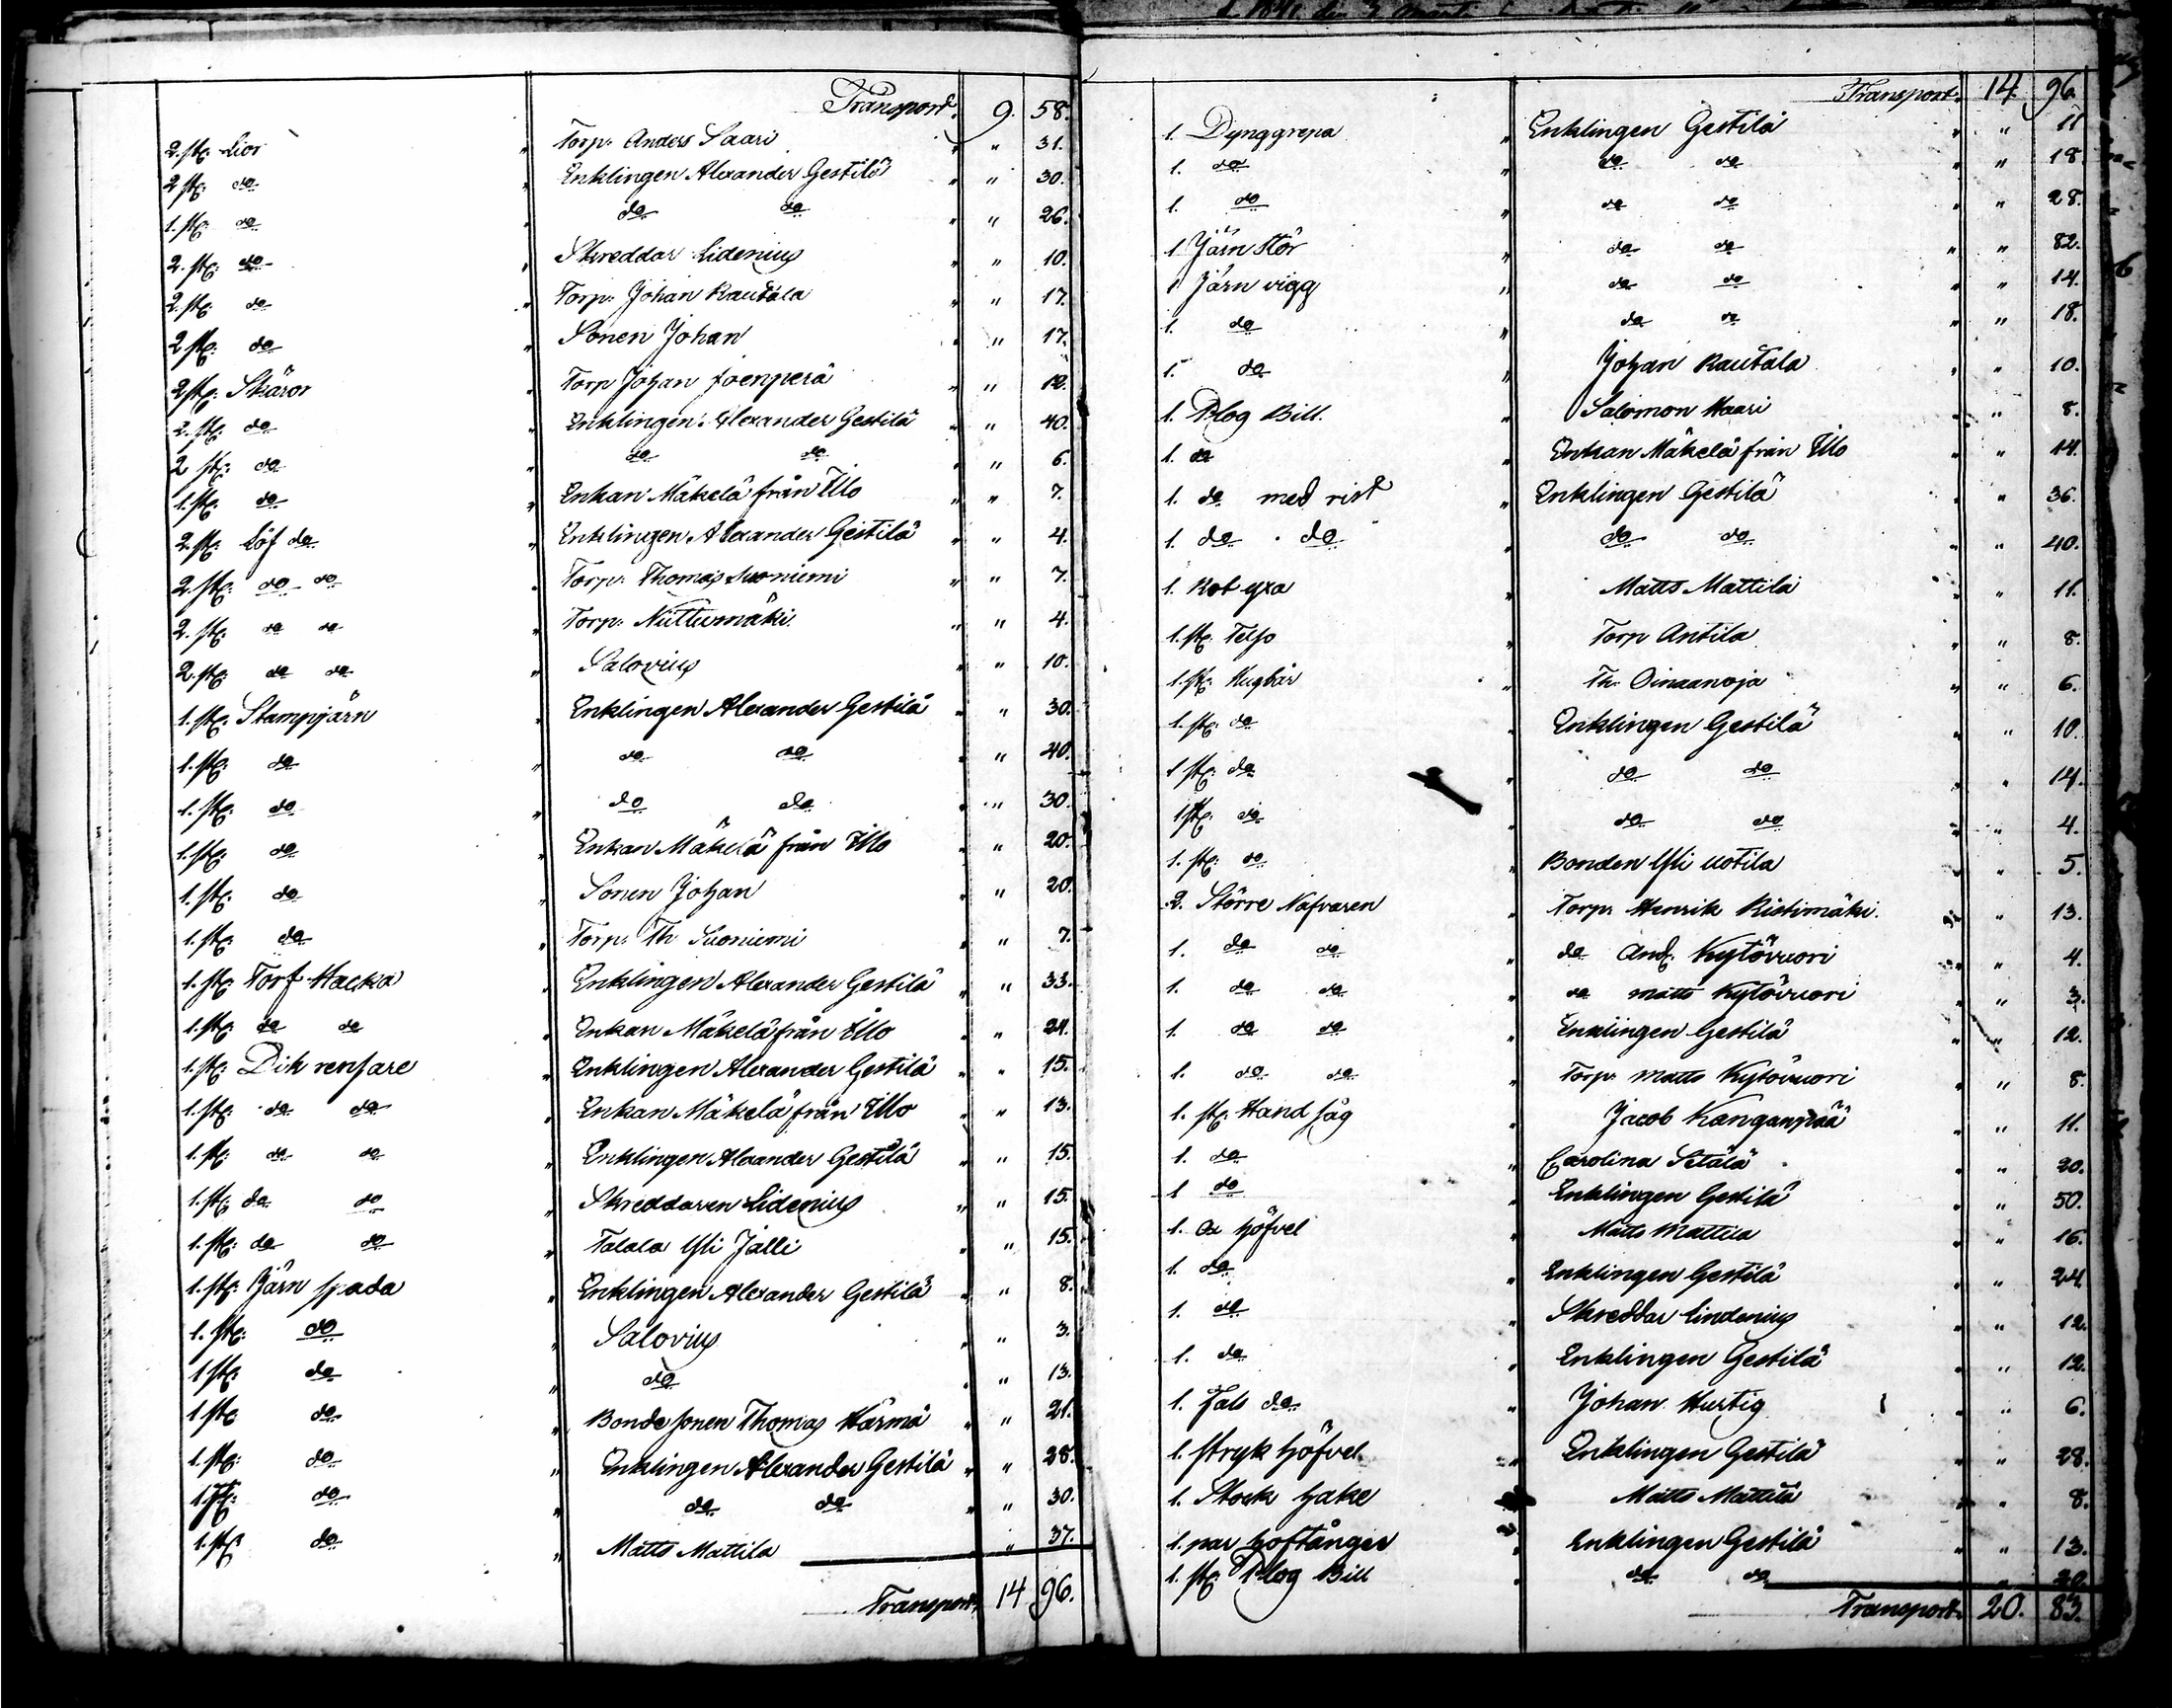 Transport. 9. 58.
2. st: Lior " Torp: Anders Saari " " 31.
2 st: do " Enklingen Alexander Gestilä " " 30.
1. st: do " do do " " 26.
2. st: do " Skreddar Lidenius " " 10.
2. st: do " Torp: Johan Rautala " " 17.
2 st: do " Sonen Johan " " 17.
2 st: Skäror " Torp Johan Joenperä " " 12.
2. st: do " Enklingen: Alexander Gestilä " " 40.
2 st: do " do do " " 6.
1. st: do " Enkan Mäkelä från Illo " " 7.
2. st: Löf do " Enklingen Alexander Gestilä " " 4.
2. st: do do " Torp: Thomas Suoniemi " " 7.
2. st: do do " Torp: Niittumäki " " 4.
2. st: do do " Salovius " " 10.
1. st: Stampjärn " Enklingen Alexander Gestilä " " 30.
1. st: do " do do " " 40.
1. st: do " do do " " 30.
1. st: do " Enkan Mäkelä från Illo " " 20.
1. st: do " Sonen Johan " " 20.
1. st: do " Torp: Th Suoniemi " " 7.
1. st: Torf Hacka " Enklingen Alexander Gestilä " " 33.
1. st: do do " Enkan Mäkelä från Illo " " 24.
1. st: Dik rensare " Enklingen Alexander Gestilä " " 15.
1. st: do do " Enkan Mäkelä från Illo " " 13.
1. st: do do " Enklingen Alexander Gestilä " " 15.
1. st: do do " Skreddaren Lidenius " " 15.
1. st: do do " Talala Yli Jalli " " 15.
1. st: Järn spada " Enklingen Alexander Gestilä " " 8.
1. st: do " Salovius " " 3.
1 st: do " do " " 13.
1 st: do " Bonde sonen Thomas Härmä " " 21.
1. st: do " Enklingen Alexander Gestilä " " 28.
1. st: do " do do " " 30.
1. st: do " Matts Mattila " " 37.
Transport. 14 96.
Transport. 14. 96.
1. Dynggrepa " Enklingen Gestilä " " 11
1. do " do do " " 18.
1. do " do do " " 28.
1 Järn stör " do do " " 82.
1 Järn vigg " do do " " 14.
1. do " do do " " 18.
1. do " Johan Rautala " " 10.
1. Plog Bill. " Salomon Haari " " 8.
1. do " Enkan Mäkelä från Illo " " 14.
1. do med rist " Enklingen Gestilä " " 36.
1. do do " do do " " 40.
1. Rot yxa " Matts Mattila " " 11.
1. st: Telso " Torp Antila " " 8.
1. st: " Th: Oinaanoja " " 6.
1. st: do " Enklingen Gestilä " " 10.
1 st: do " do do " " 14.
1 st: do " do do " " 4.
1. st: do " Bonden Yli Uotila " " 5.
2. Större Nafvaren " Torp: Henrik Ristimäki. " " 13.
1. do do " do And: Kytövuori " " 4.
1. do do " do Matts Kytövuori " " 3.
1. do do " Enklingen Gestilä " " 12.
1. do do " Torp: Matts Kytövuori " " 8.
1. st: Hand såg " Jacob Kanganpää " " 11.
1. do " Carolina Setälä " " 20.
1 do " Enklingen Gestilä " " 50.
1. Ox höfvel " Matts Mattila " " 16.
1. do " Enklingen Gestilä " " 24.
1. do " Skreddar Lindenius " " 12.
1. do " Enklingen Gestilä " " 12.
1. Fals do " Johan Hurtig " " 6.
1. Stryk höfvel. " Enklingen Gestilä " " 28.
1. Stock hake " Matts Mattila " " 8.
1. par hoftånger " Enklingen Gestilä " " 13.
1. st: Plog Bill " do do " " 20.
Transport. 20. 83.